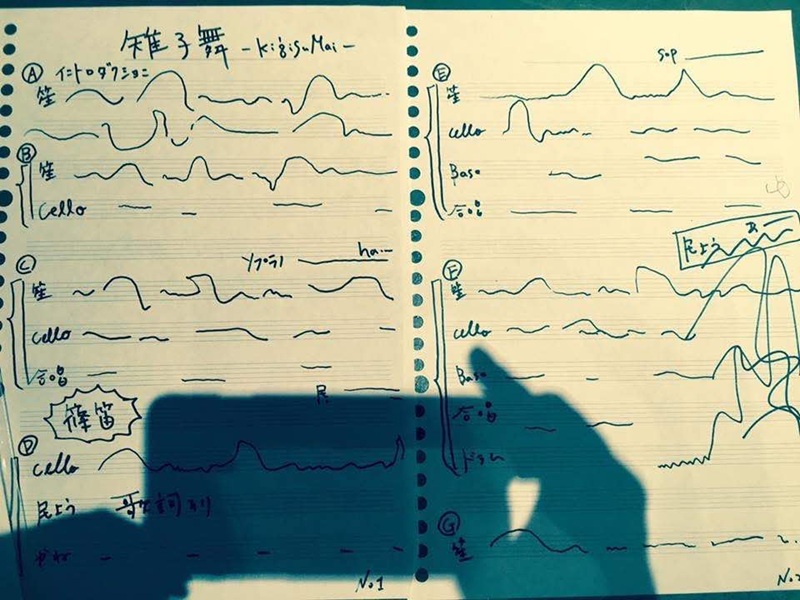 雉子舞 -KigisuMai-
Ⓐ イントロダクション
笙
Ⓑ
笙
Cello
Ⓒ ソプラノ ha...
笙
cello
合唱
民
篠笛
Ⓓ
cello
民よう 歌詞別
No.1
Ⓔ sop
笙
cello
Base
合唱
民よう
Ⓕ
笙
cello
Base
合唱
ドラム
Ⓖ
笙